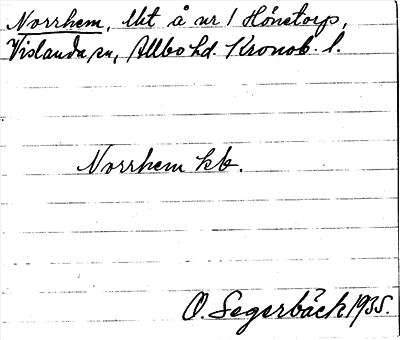 Norrhem, lht å nr 1 Hönetorp,
Vislanda sn, Allbo hd. Kronob. l.
Norrhem kb.
O. Segerbäck 1935.